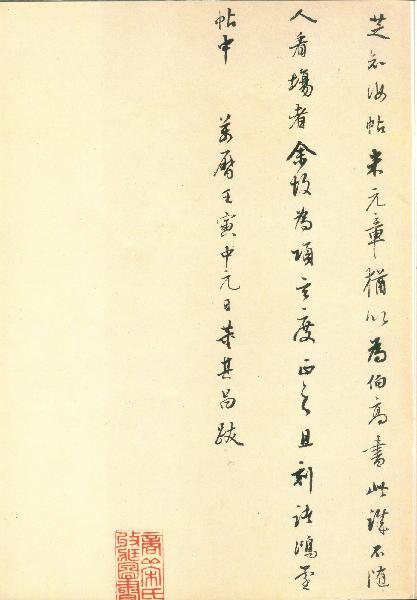 芝知汝帖米元章猶以為伯高書此不隨
人看場者余故為項玄度正之且刻諸鴻堂
帖中　萬曆壬寅中元日董其昌跋